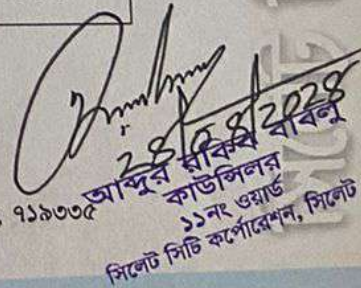 ২৪/০৪/২০২৪
৭১৯৩৩৫
আব্দুর রকিব বাবলু
কাউন্সিলর
১১নং ওয়ার্ড
সিলেট সিটি কর্পোরেশন, সিলেট